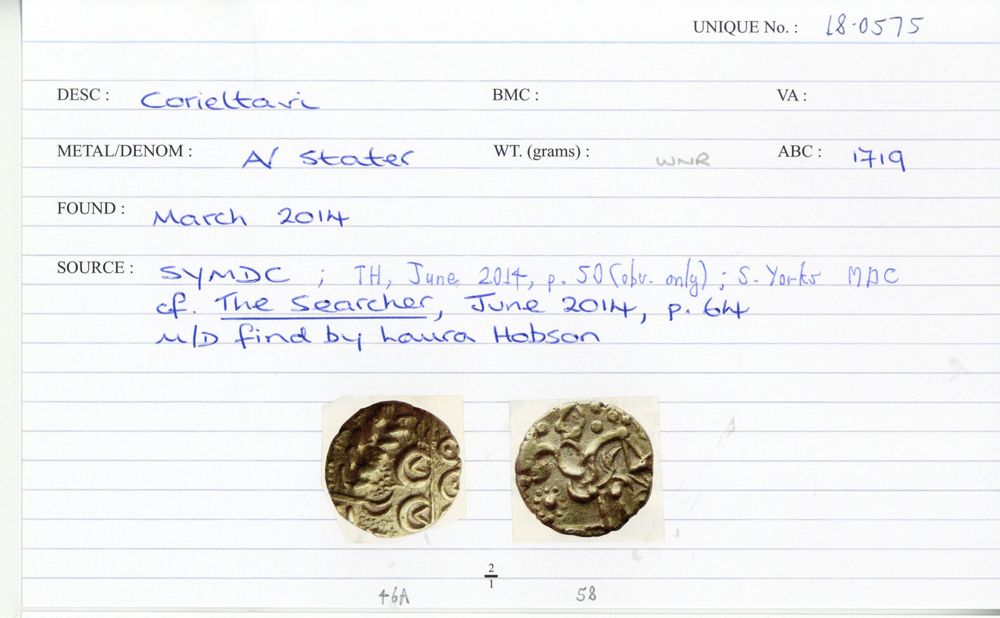 UNIQUE No. : 18-0575
DESC : Corieltavi BMC : VA :
METAL/DENOM : A/ Stater WT. (grams) : WNR ABC : 1719
FOUND : March 2014
SOURCE : SYMDC ; TH, June 2014, p. 50 (obv. only) ; S. Yorks MDC
cf. The Searcher, June 2014, p. 64
M/D find by Laura Hobson
2
1
46A 58